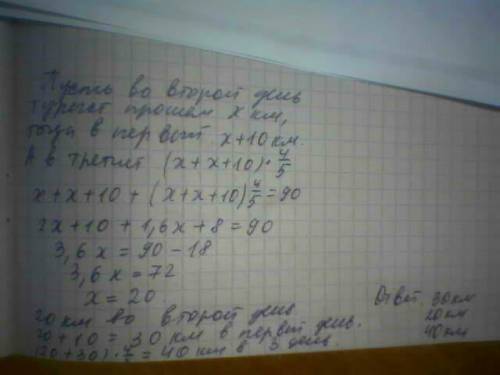 Пусть во второй день
турист прошел x км,
тогда в первый x+10 км.
А в третий (x+x+10)·4/5
x+x+10+(x+x+10)4/5=90
2x+10+1,6x+8=90
3,6x=90-18
3,6x=72
x=20
20 км во второй день
20+10=30 км в первый день.
(20+30)·4/5=40 км в 3 день.
Ответ. 30 км
20 км
40 км